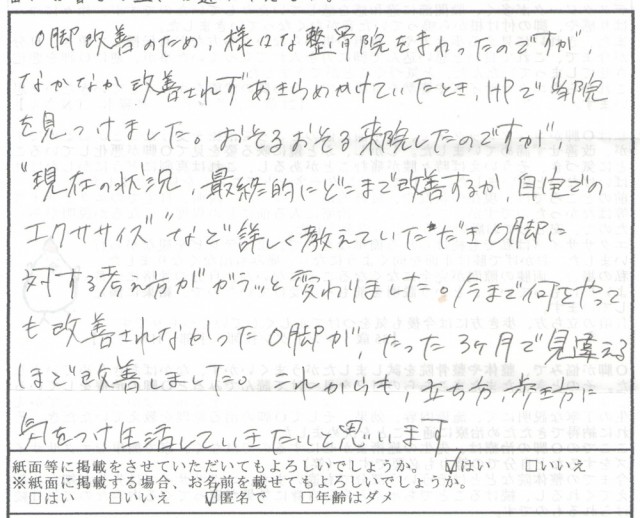 O脚改善のため、様々な整骨院をまわったのですが、
なかなか改善されずあきらめかけていたとき、HPで当院
を見つけました。おそるおそる来院したのですが
"現在の状況、最終的にどこまで改善するか、自宅での
エクササイズ"など詳しく教えていただきO脚に
対する考え方がガラッと変わりました。今まで何をやって
も改善されなかったO脚が、たった3ヶ月で見違える
ほど改善しました。これからも、立ち方、歩き方に
気をつけ生活していきたいと思います
紙面等に掲載をさせていただいてもよろしいでしょうか。 ☑はい □いいえ
※紙面に掲載する場合、お名前を載せてもよろしいでしょうか。
□はい □いいえ ☑匿名で □年齢はダメ